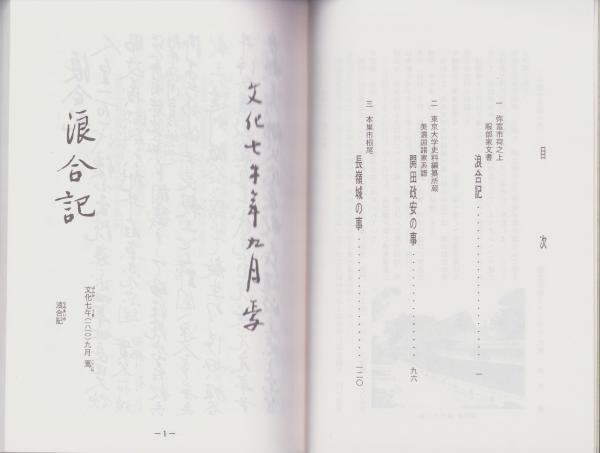 目次
一 弥富市荷之上
服部家文書
浪合記……………………一
二 東京大学史料編纂所蔵
美濃国諸家系譜
開田政安の事……………………九六
三 本巣市根尾
長嶺城の事……………………一二〇
文化七午年九月写
浪合記
文化七午(一八一〇)九月 写
浪合記
—1—